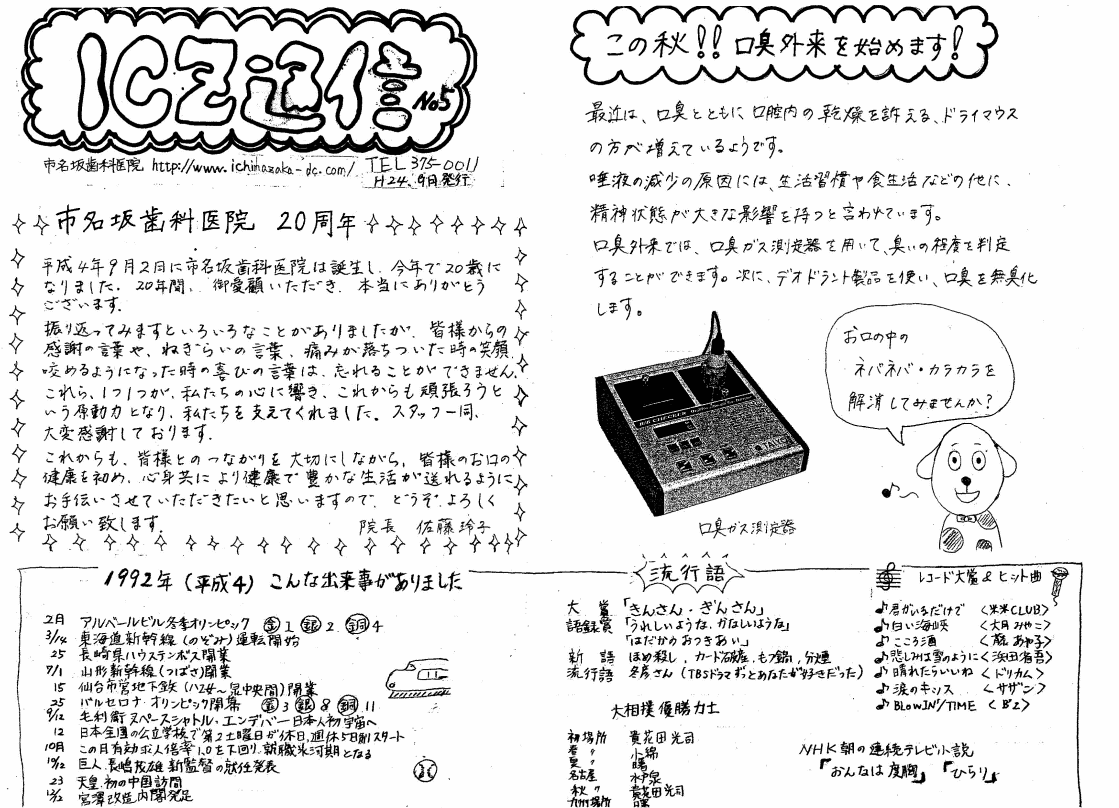 ICZ通信 No5
市名坂歯科医院 http://www.ichinazaka-dc.com/ TEL 375-0011
H24.9月発行
市名坂歯科医院 20周年
平成4年9月2日に市名坂歯科医院は誕生し、今年で20歳に
なりました。20年間、御愛顧いただき、本当にありがとう
ございます。
振り返ってみますといろいろなことがありましたが、皆様からの
感謝の言葉や、ねぎらいの言葉、痛みが落ちついた時の笑顔、
咬めるようになった時の喜びの言葉は、忘れることができません。
これら、1つ1つが、私たちの心に響き、これからも頑張ろうと
いう原動力となり、私たちを支えてくれました。スタッフ一同、
大変感謝しております。
これからも、皆様とのつながりを大切にしながら、皆様のお口の
健康を初め、心身共により健康で豊かな生活が送れるように
お手伝いさせていただきたいと思いますので、どうぞよろしく
お願い致します。
院長 佐藤玲子
この秋!! 口臭外来を始めます!
最近は、口臭とともに口腔内の乾燥を訴える、ドライマウス
の方が増えているようです。
唾液の減少の原因には、生活習慣や食生活などの他に、
精神状態が大きな影響を持つと言われています。
口臭外来では、口臭ガス測定器を用いて、臭いの程度を判定
することができます。次に、デオドラント製品を使い、口臭を無臭化
します。
お口の中の
ネバネバ・カラカラを
解消してみませんか?
口臭ガス測定器
1992年(平成4) こんな出来事がありました
2月 アルベールビル冬季オリンピック 金1 銀2 銅4
3/14 東海道新幹線(のぞみ)運転開始
25 長崎県ハウステンボス開業
7/1 山形新幹線(つばさ)開業
15 仙台市営地下鉄(八乙女〜泉中央間)開業
25 バルセロナオリンピック開幕 金3 銀8 銅11
9/12 毛利衛 スペースシャトル・エンデバー日本人初宇宙へ
12 日本全国の公立学校で第2土曜日が休日、週休5日制スタート
10月 この月有効求人倍率1.0を下回り、就職氷河期となる
10/12 巨人 長嶋茂雄 新監督の就任発表
23 天皇 初の中国訪問
12/12 宮澤改造内閣発足
流行語
大賞 「きんさん・ぎんさん」
語録賞 「うれしいような、かなしいような」
「はだかのおつきあい」
新語 ほめ殺し、カード破産、もつ鍋、分煙
流行語 冬彦さん(TBSドラマずっとあなたが好きだった)
大相撲優勝力士
初場所 貴花田光司
春 〃 小錦
夏 〃 曙
名古屋 水戸泉
秋 〃 貴花田光司
九州場所 曙
レコード大賞&ヒット曲
君がいるだけで <米米CLUB>
白い海峡 <大月みやこ>
こころ酒 <藤あや子>
悲しみは雪のように<浜田省吾>
晴れたらいいね <ドリカム>
涙のキッス <サザン>
BLOWIN'/TIME <B'z>
NHK朝の連続テレビ小説
『おんなは度胸』 『ひらり』